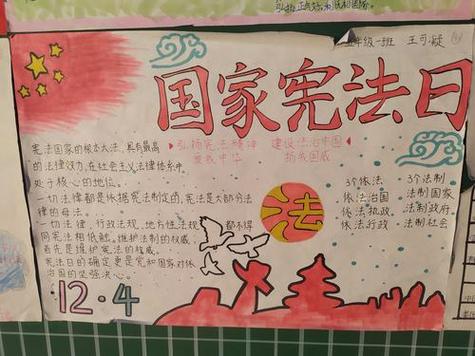 五年级一班 王可凝
国家宪法日
宪法国家的根本大法,具有最高
的法律效力,在社会主义法律体系中
处于核心的地位。
一切法律都是依据宪法制定的,宪法是大部分法
律的母法。
一切法律,行政法规,地方性法规 都不得
同宪法相低触。维护法制的权威,
首先是维护宪法的权威。
宪法日的确定更是党和国家对依
治国的坚强决心。
弘扬宪法精神 建设法治中国
爱我中华 扬我国威
法
3个依法
依法治国
依法执政
依法行政
3个法制
法制国家
法制政府
法制社会
12·4